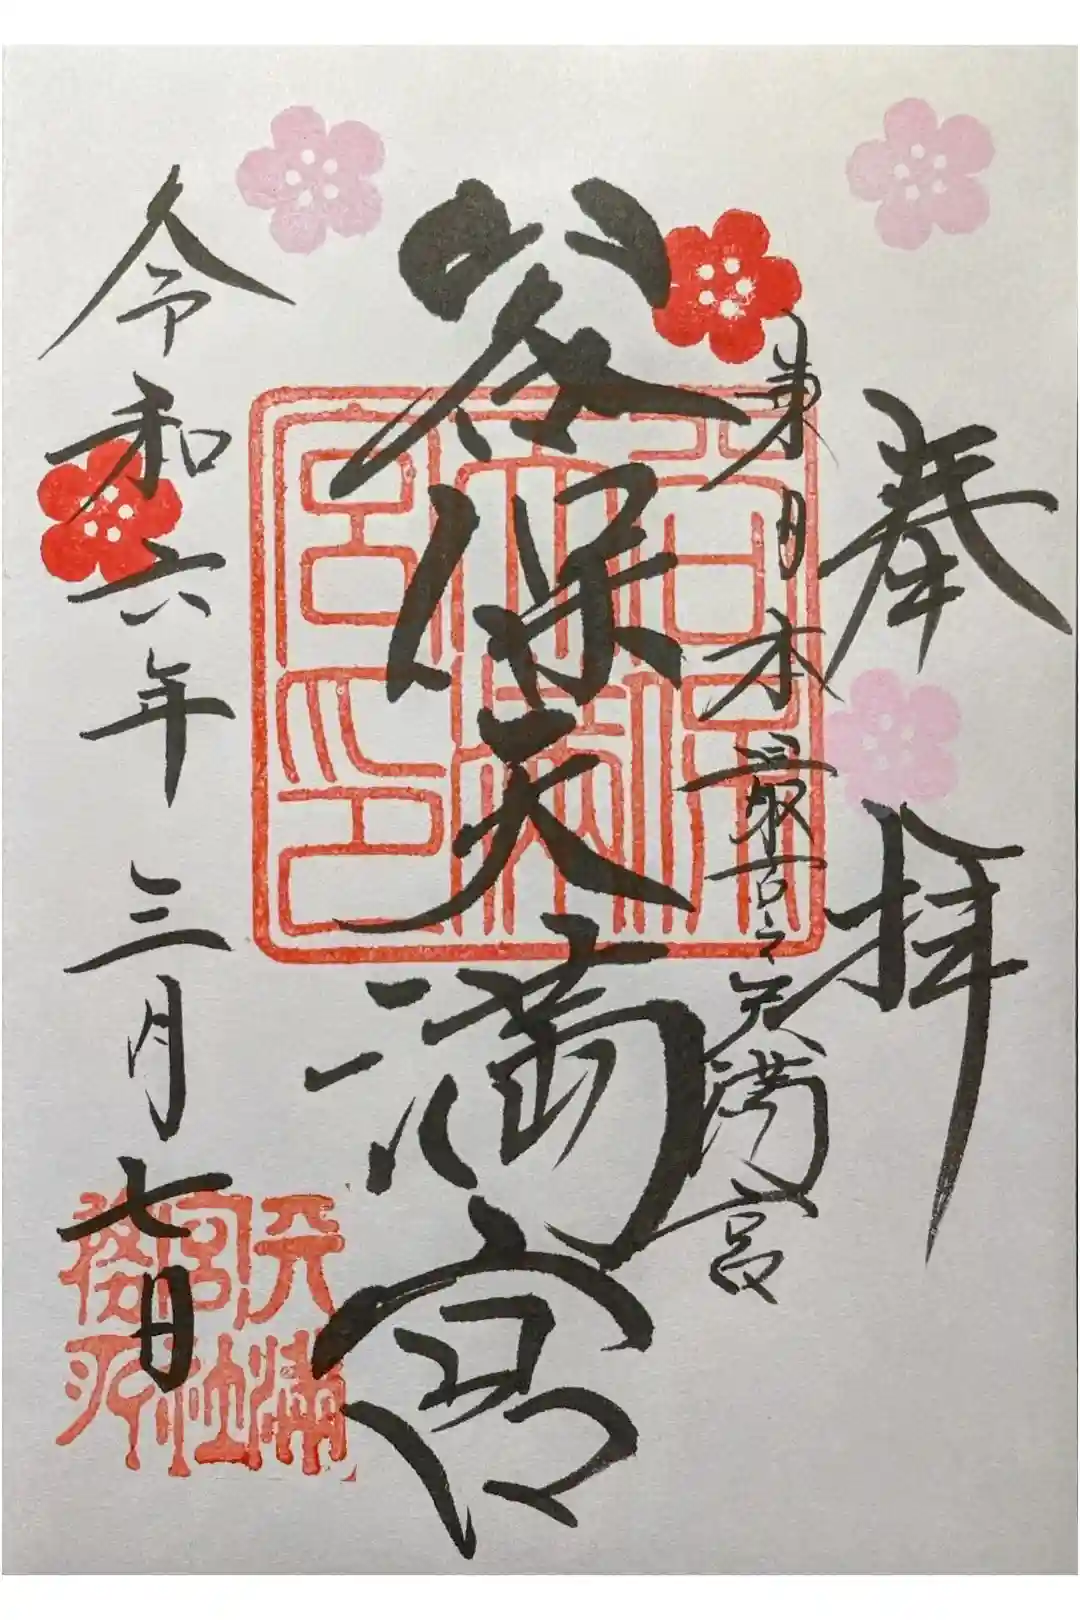 奉拝
東日本最古之天満宮
谷保天満宮
令和六年三月七日
谷保
天満
宮印
天満
宮社
務所